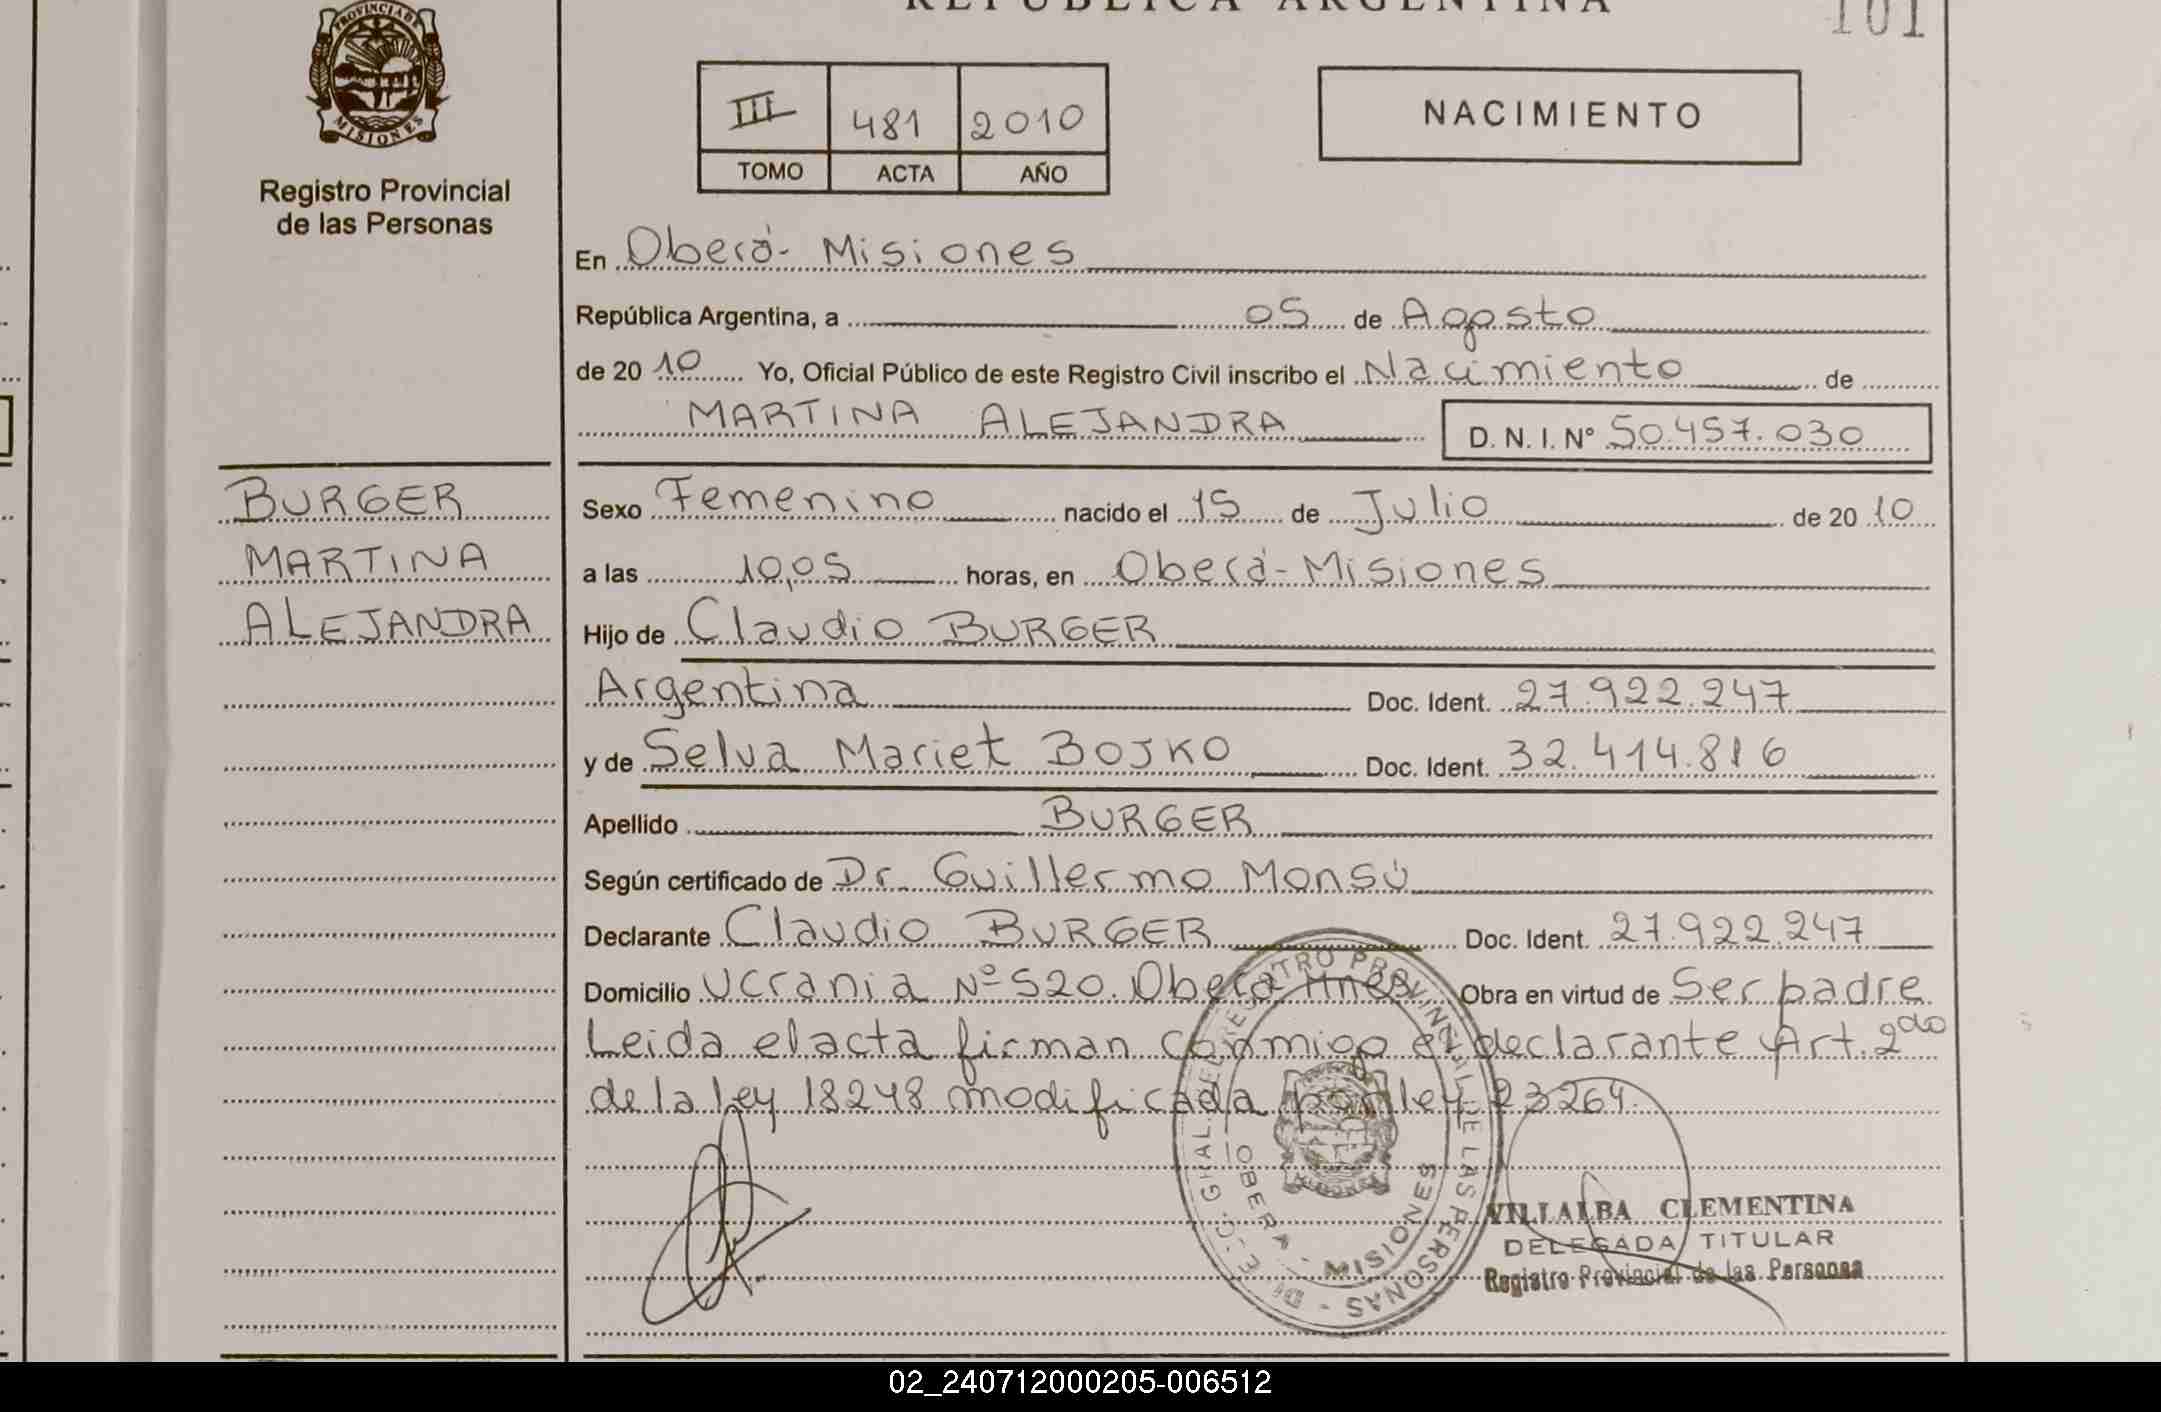 REPUBLICA ARGENTINA
101
PROVINCIA DE
MISIONES
Registro Provincial
de las Personas
III 481 2010
TOMO ACTA AÑO
NACIMIENTO
En Oberá- Misiones
República Argentina, a 05 de Agosto
de 20 10 Yo, Oficial Público de este Registro Civil inscribo el Nacimiento de
MARTINA ALEJANDRA D. N. I. Nº 50.457.030
BURGER
MARTINA
ALEJANDRA
Sexo Femenino nacido el 15 de Julio de 20 10
a las 10,05 horas, en Oberá-Misiones
Hijo de Claudio BURGER
Argentina Doc. Ident. 27.922.247
y de Selva Mariet BOJKO Doc. Ident. 32.414.816
Apellido BURGER
Según certificado de Dr. Guillermo Monsú
Declarante Claudio BURGER Doc. Ident. 27.922.247
Domicilio Ucrania Nº 520. Oberá Mnes. Obra en virtud de Ser padre
Leida el acta firman conmigo el declarante Art. 2do
de la ley 18248 modificada por ley 23264.
REGISTRO PROVINCIAL DE LAS PERSONAS
OBERA - MISIONES
VILLALBA CLEMENTINA
DELEGADA TITULAR
Registro Provincial de las Personas
02_240712000205-006512